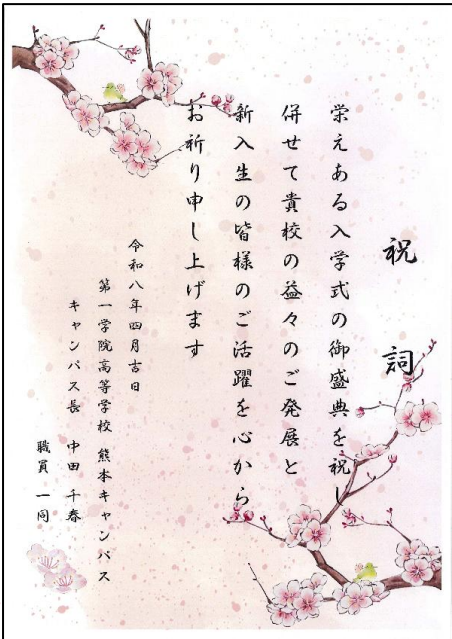 祝詞
栄えある入学式の御盛典を祝し
併せて貴校の益々のご発展と
新入生の皆様のご活躍を心から
お祈り申し上げます
令和八年四月吉日
第一学院高等学校 熊本キャンパス
キャンパス長 中田 千春
職員 一同